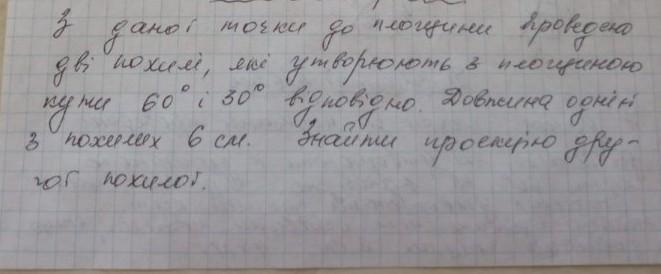 З даної точки до площини проведено
дві похилі, які утворюють з площиною
кути 60° і 30° відповідно. Довжина однієї
з похилих 6 см. Знайти проекцію дру-
гої похилої.